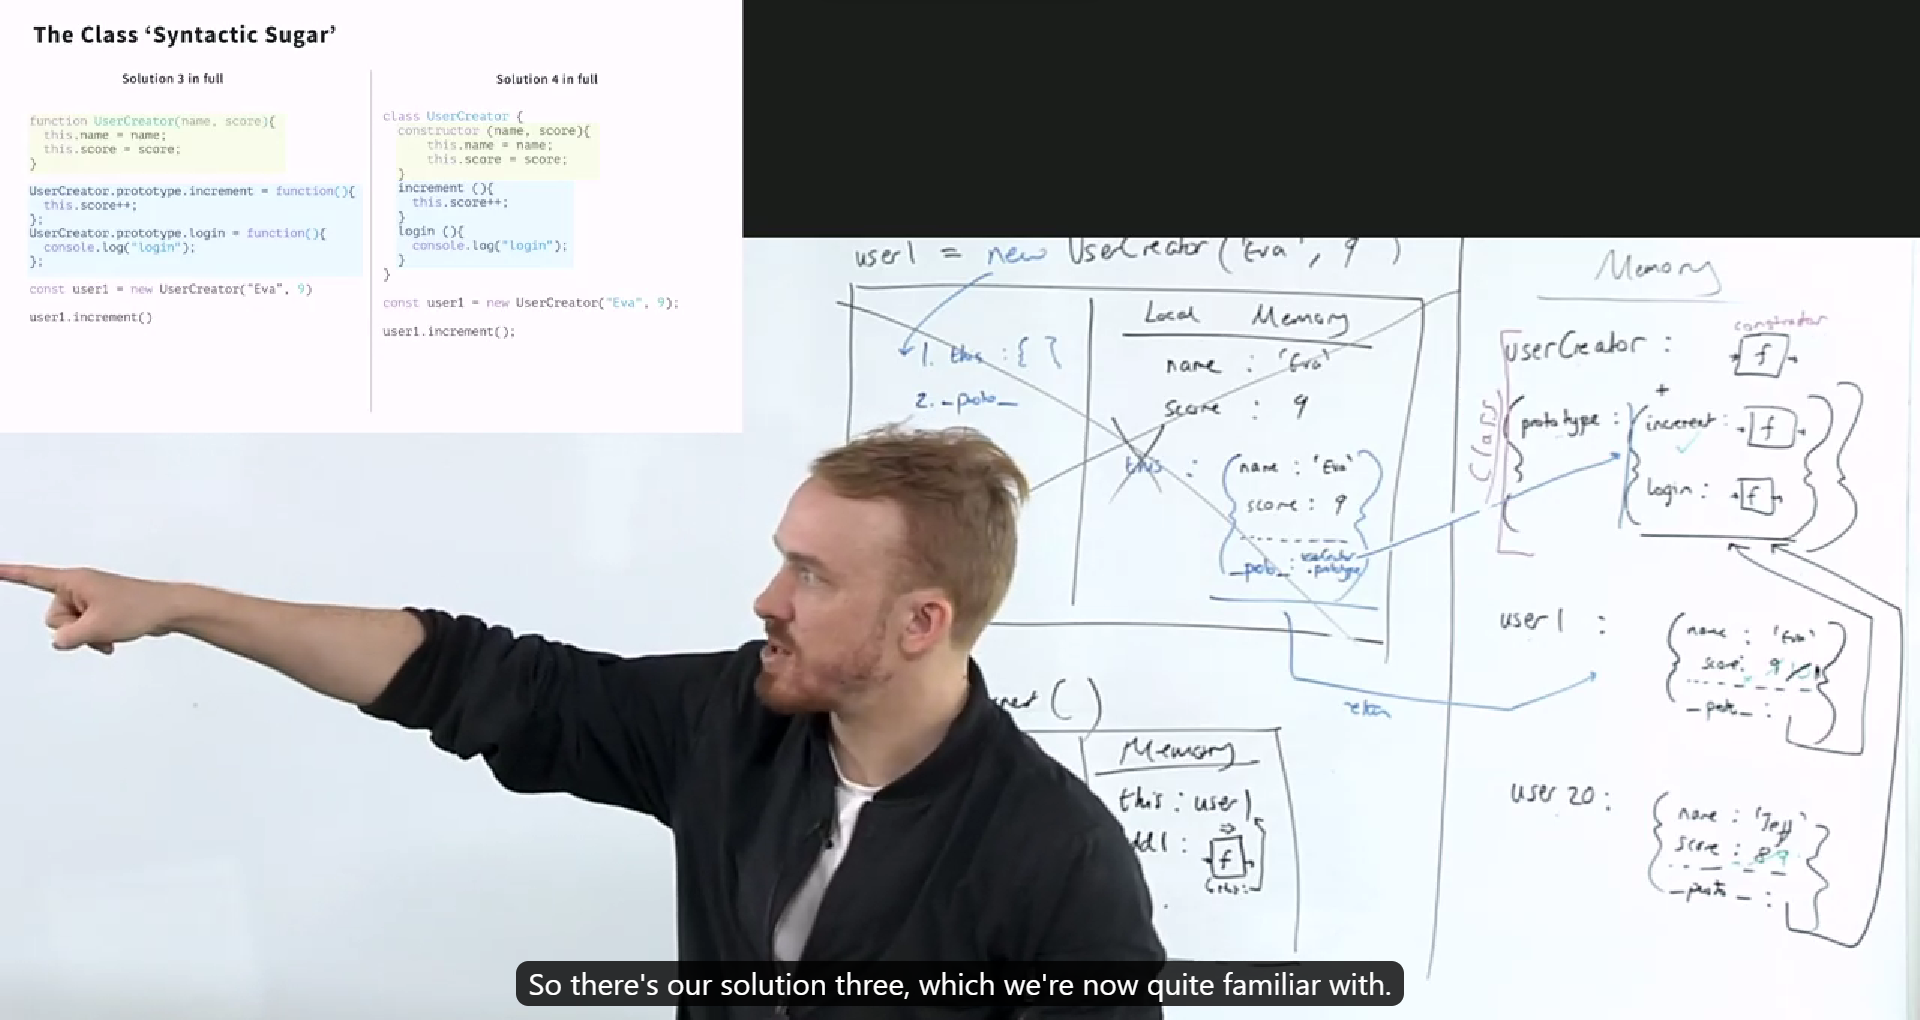 The Class ‘Syntactic Sugar’
Solution 3 in full
function UserCreator(name, score){
this.name = name;
this.score = score;
}
UserCreator.prototype.increment = function(){
this.score++;
};
UserCreator.prototype.login = function(){
console.log("login");
};
const user1 = new UserCreator("Eva", 9)
user1.increment()
Solution 4 in full
class UserCreator {
constructor (name, score){
this.name = name;
this.score = score;
}
increment (){
this.score++;
}
login (){
console.log("login");
}
}
const user1 = new UserCreator("Eva", 9);
user1.increment();
user1 = new UserCreator('Eva', 9)
1. this : { }
2. _proto_
Local Memory
name : 'Eva'
score : 9
this :
name : 'Eva'
score : 9
_proto_ : userCreator
.prototype
return
( )
Memory
this : user1
add1 : f
Memory
constructor
userCreator : f
+
Class
prototype : increment : f
login : f
user1 :
name : 'Eva'
score : 9 10
_proto_ :
user 20 :
name : 'Jeff'
score : 8 9
_proto_ :
So there's our solution three, which we're now quite familiar with.